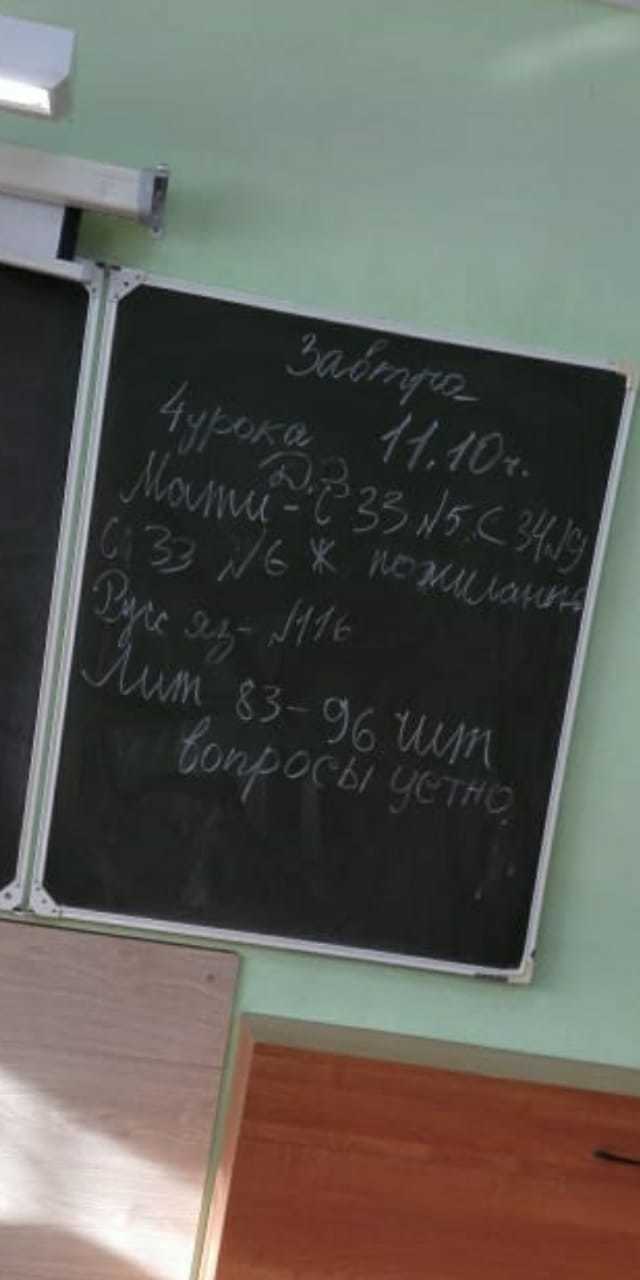 Завтра
4 урока 11.10ч.
Д.З
Мати - С 33 №5. С 34 №9
С 33 №6 Ж пожилание
Русс яз - №116
Лит 83 - 96 чит
вопросы устно.